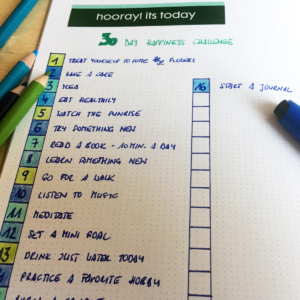 hooray! its today
30 DAY HAPPINESS CHALLENGE
1 TREAT YOURSELF TO SOME FLOWERS
2 BAKE A CAKE
3 YOGA
16 START A JOURNAL
4 EAT HEALTHILY
5 WATCH THE SUNRISE
6 TRY SOMETHING NEW
7 READ A BOOK - 10 MIN. A DAY
8 LEARN SOMETHING NEW
9 GO FOR A WALK
10 LISTEN TO MUSIC
11 MEDITATE
12 SET A MINI GOAL
13 DRINK JUST WATER TODAY
PRACTICE A FAVORITE HOBBY